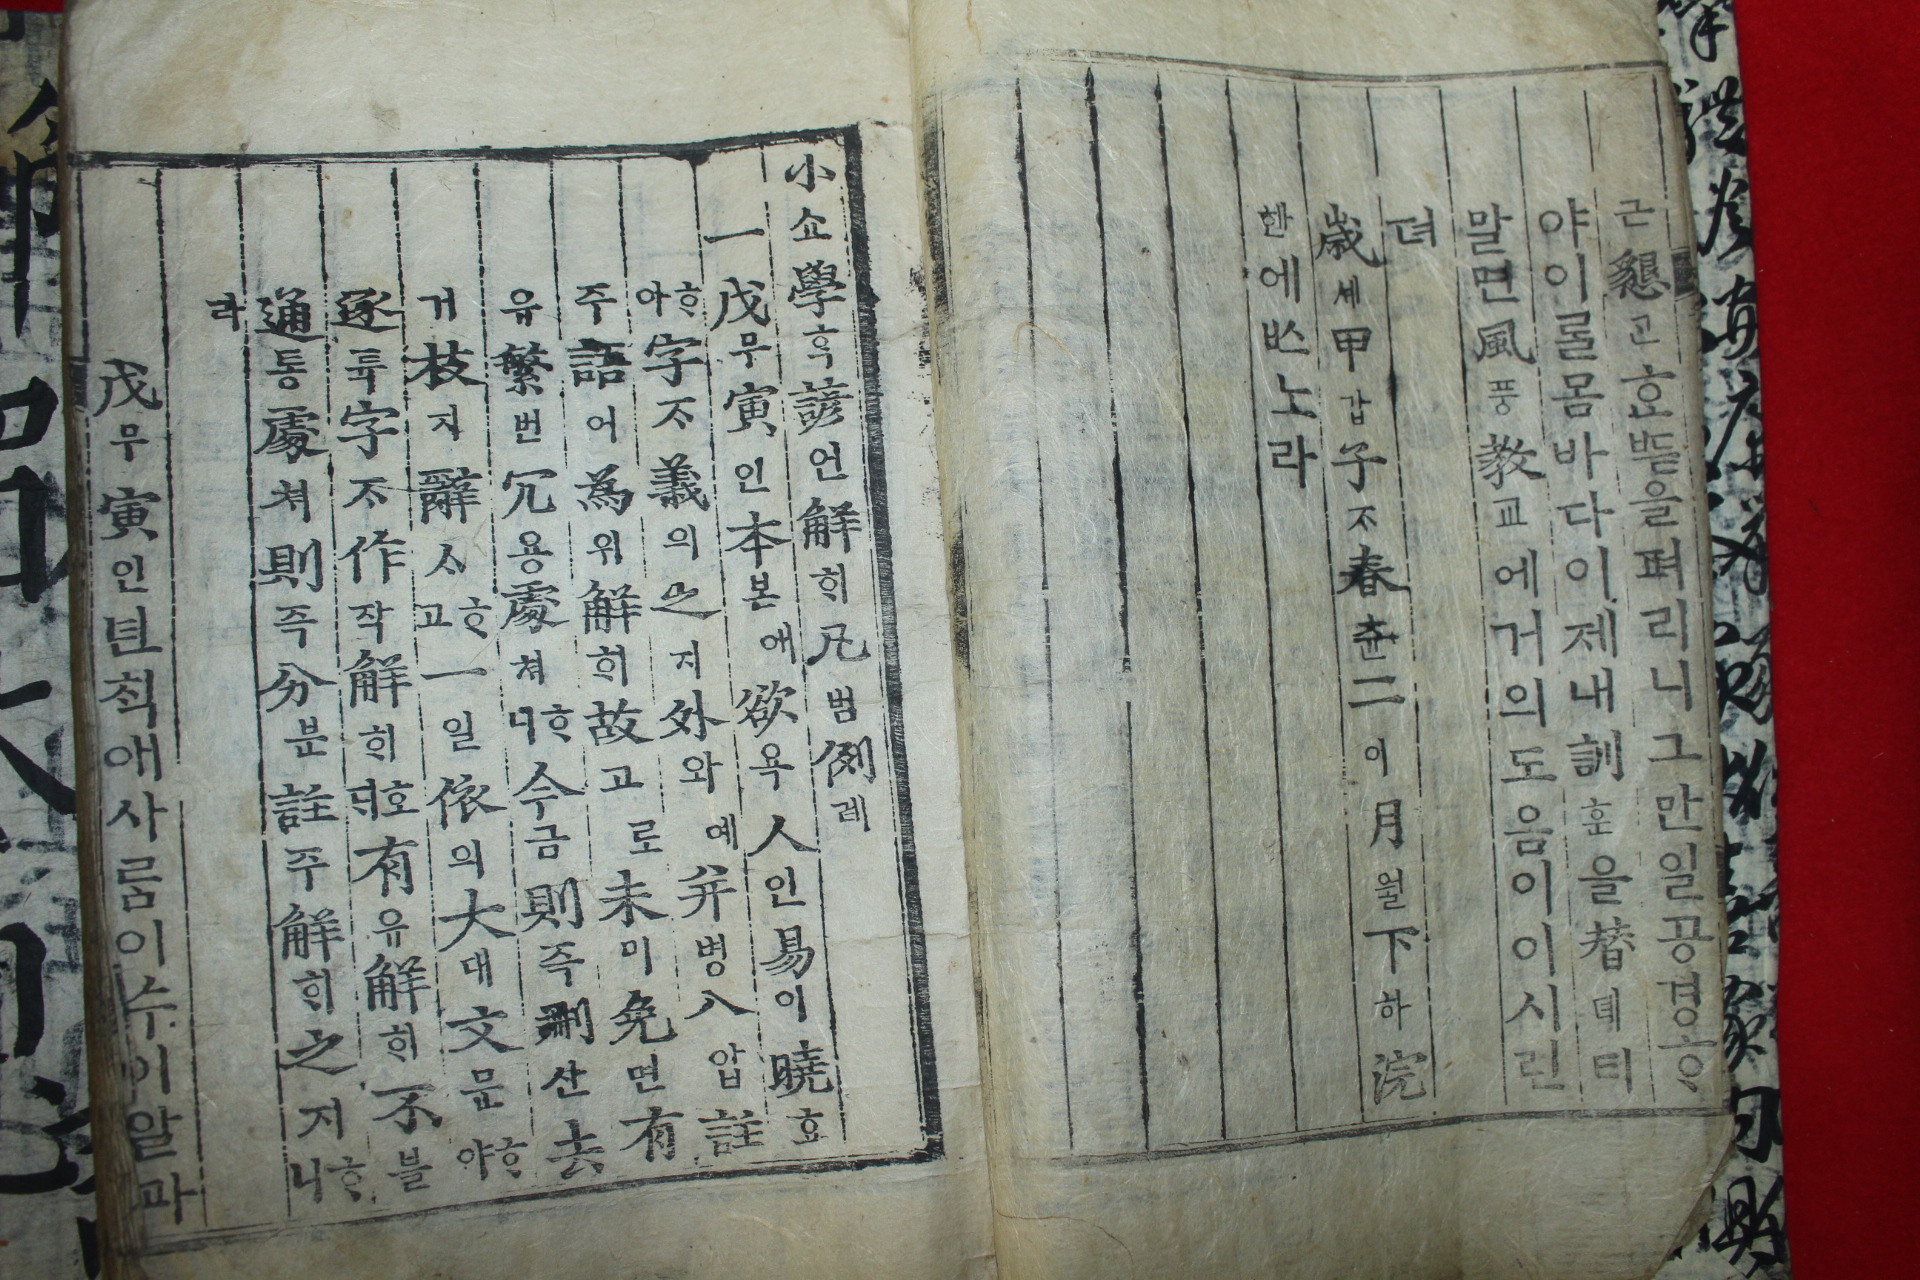 근懇고ᄒᆞᆫᄠᅳᆮ을펴리니그만일공경ᄒᆞ
야이ᄅᆞᆯ몸바다이제내訓훈을替톄티
말면風풍敎교에거의도음이이시린
뎌
歲셰甲갑子ᄌᆞ春츈二이月월下하浣
한에쓰노라
小쇼學ᄒᆞᆨ諺언解ᄒᆡ凡범例례
一戊무寅인本본애欲욕人인易이曉효
ᄒᆞ야字ᄌᆞ義의之지外와예幷병入입註
주語어爲위解ᄒᆡ故고로未미免면有
유繁번冗용處쳐ᄒᆞ니今금則즉刪산去
거枝지辭ᄉᆞᄒᆞ고一일依의大대文문ᄒᆞ야
逐튝字ᄌᆞ作작解ᄒᆡ호ᄃᆡ有유解ᄒᆡ不블
通통處쳐則즉分분註주解ᄒᆡ之지ᄒᆞ니
라
戊무寅인년ᄎᆡᆨ애사ᄅᆞᆷ이수이알과